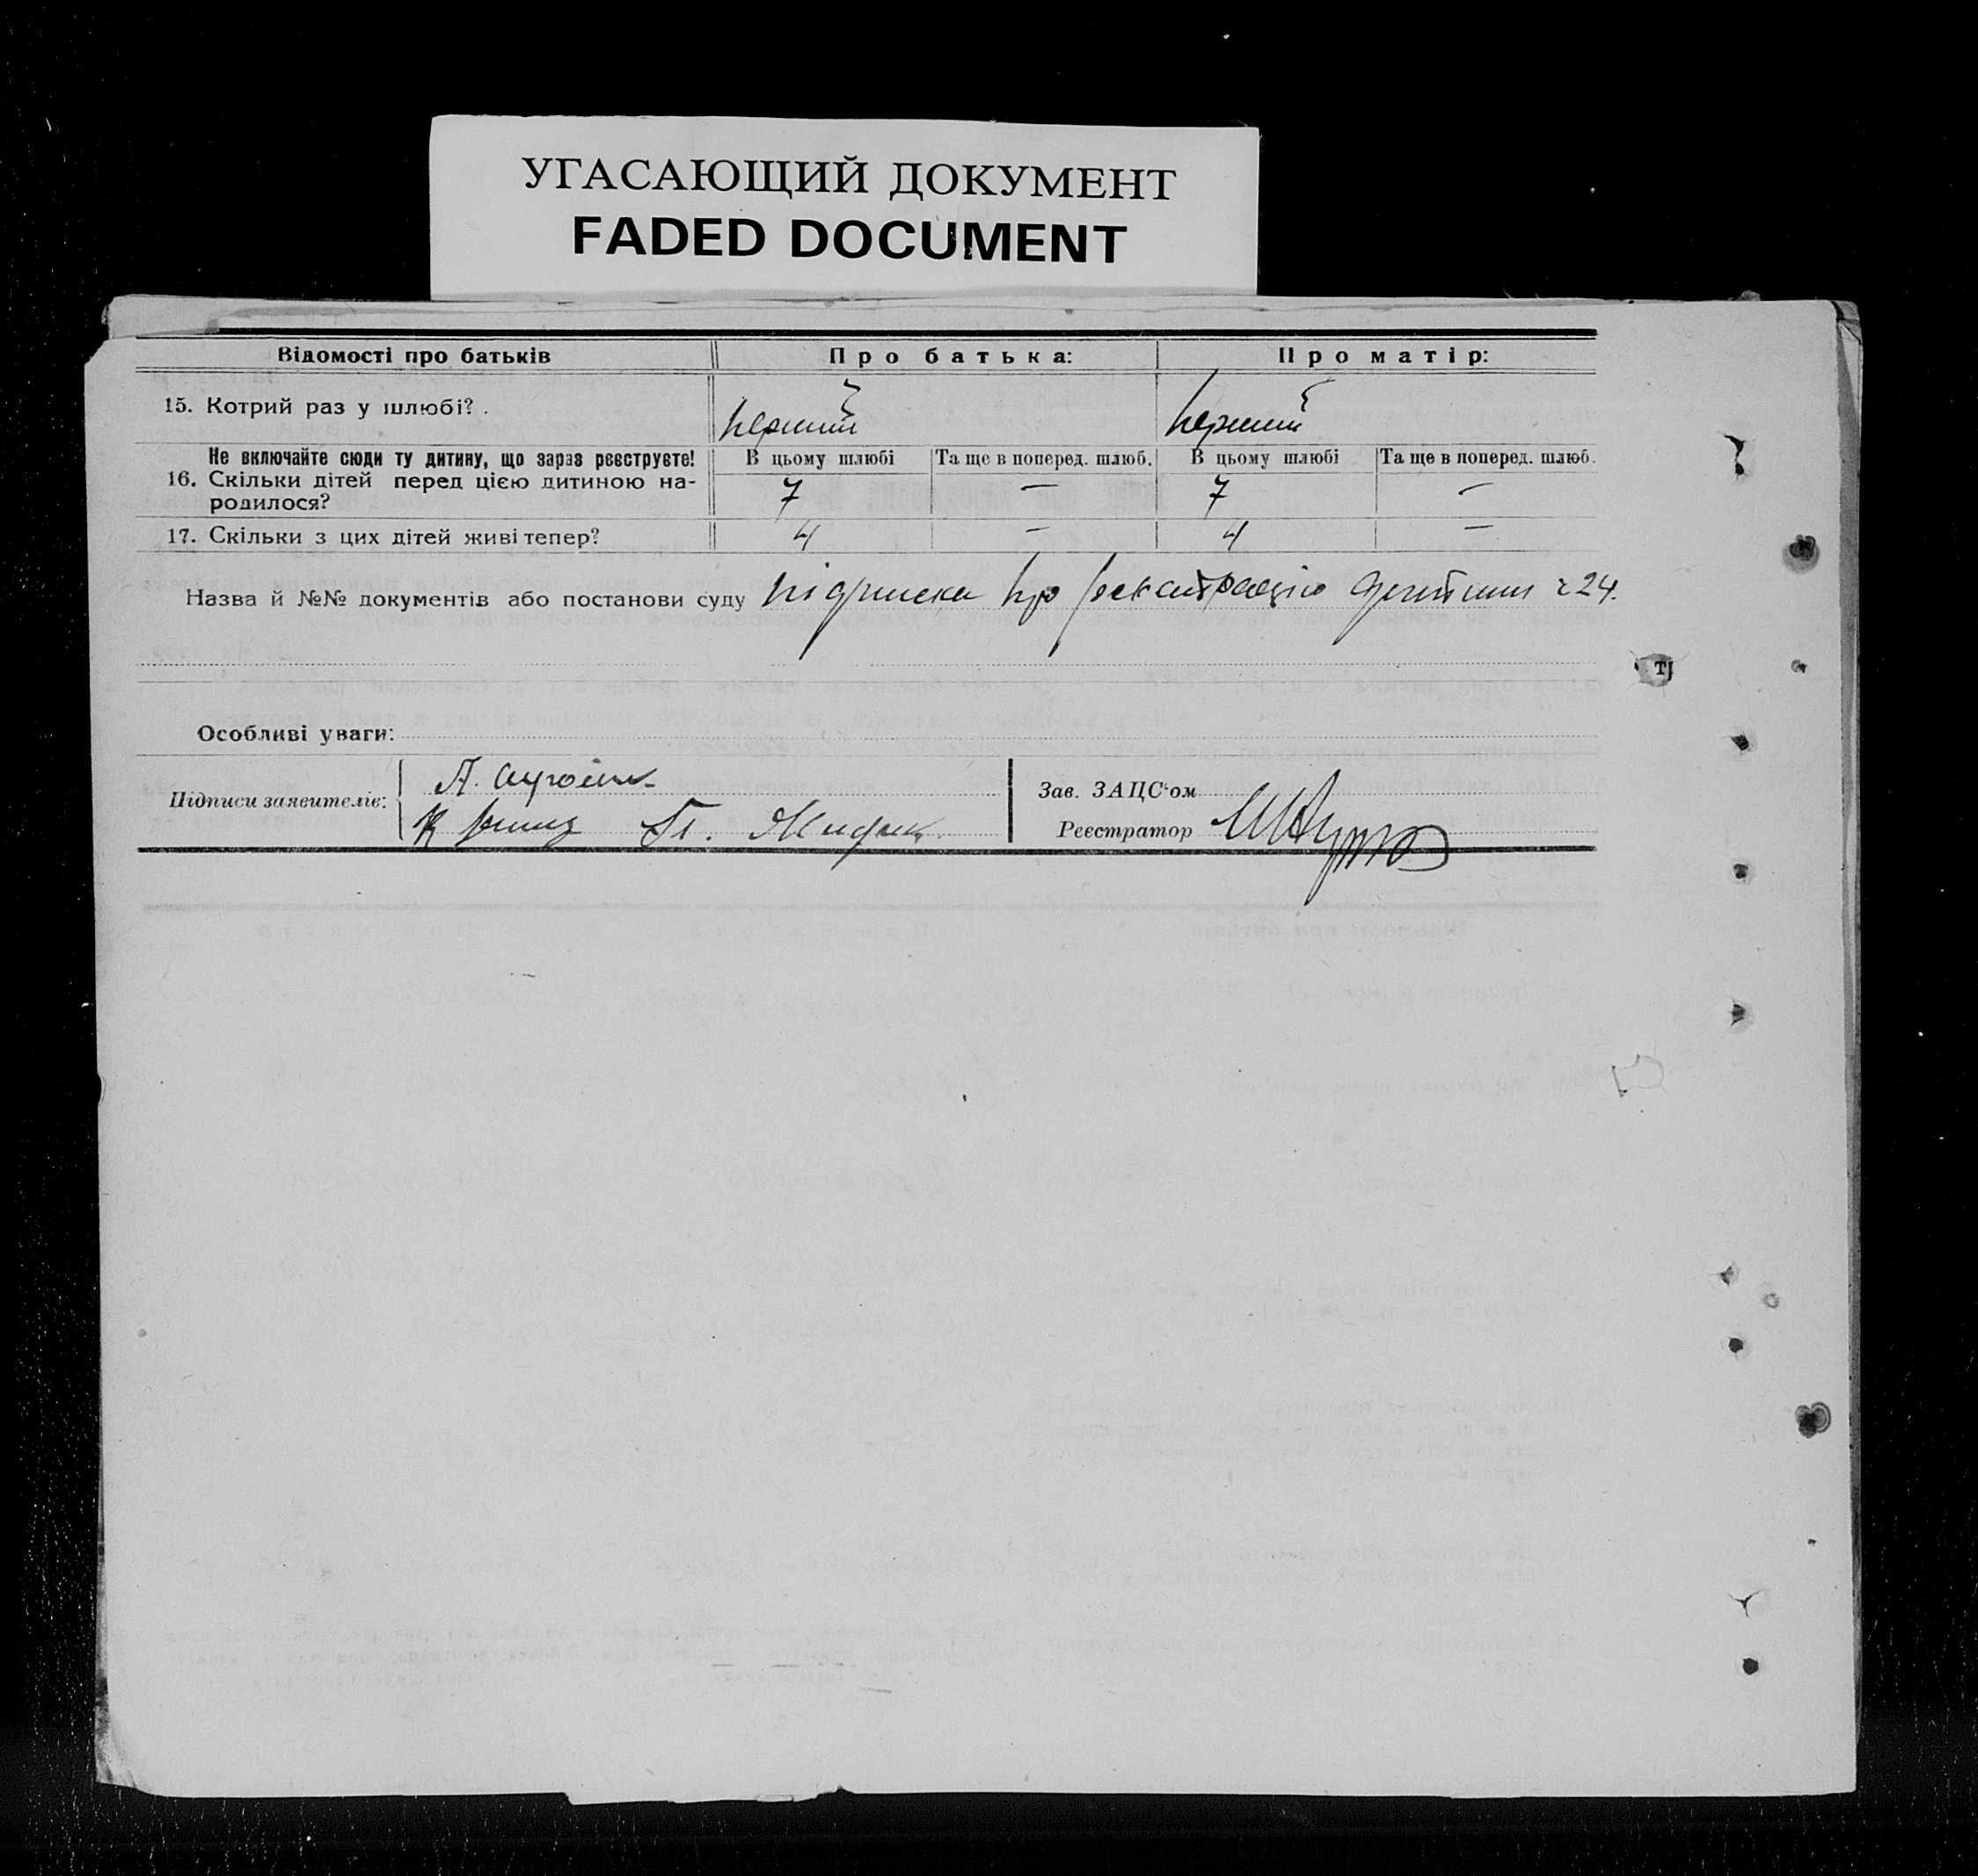 УГАСАЮЩИЙ ДОКУМЕНТ
FADED DOCUMENT
Відомості про батьків Про батька: Про матір:
15. Котрий раз у шлюбі? . перший перший
Не включайте сюди ту дитину, що зараз реєструєте! В цьому шлюбі Та ще в поперед. шлюб. В цьому шлюбі Та ще в поперед. шлюб.
16. Скільки дітей перед цією дитиною на- 7 — 7 —
родилося?
17. Скільки з цих дітей живі тепер? 4 — 4 —
Назва й №№ документів або постанови суду підписка про реєстрацію дитини 24.
Особливі уваги:
Підписи заявителів: А.
Зав. ЗАЦС'ом
Реєстратор